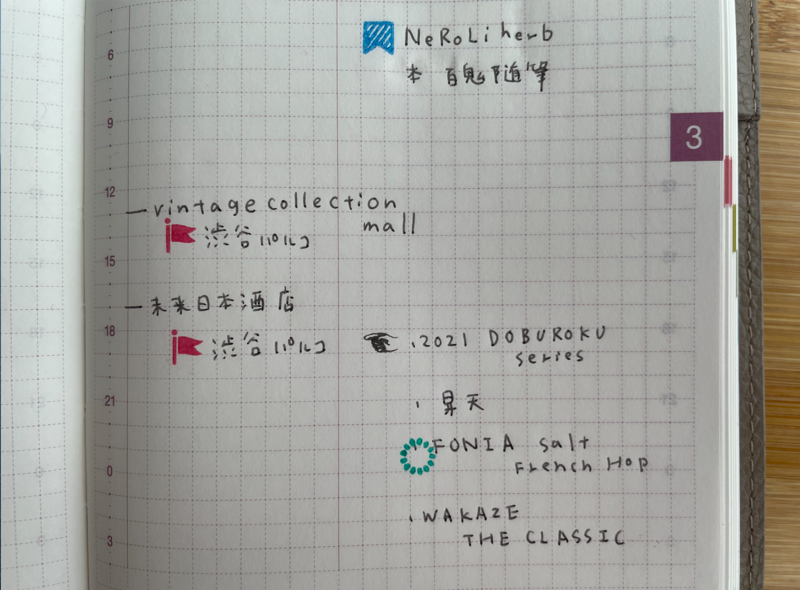 NeRoLi herb
本 百鬼随筆
6
9
3
12
vintage collection
mall
渋谷パルコ
15
未来日本酒店
18
渋谷パルコ
2021 DOBUROKU
series
21
昇天
FONIA salt
French Hop
0
WAKAZE
THE CLASSIC
3